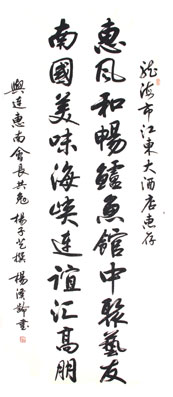 龍海市江東大酒店惠存
惠風和暢鱸魚館中聚藝友
南國美味海峽連誼匯高朋
與連惠南會長共勉 楊子芝撰 楊漢龄書